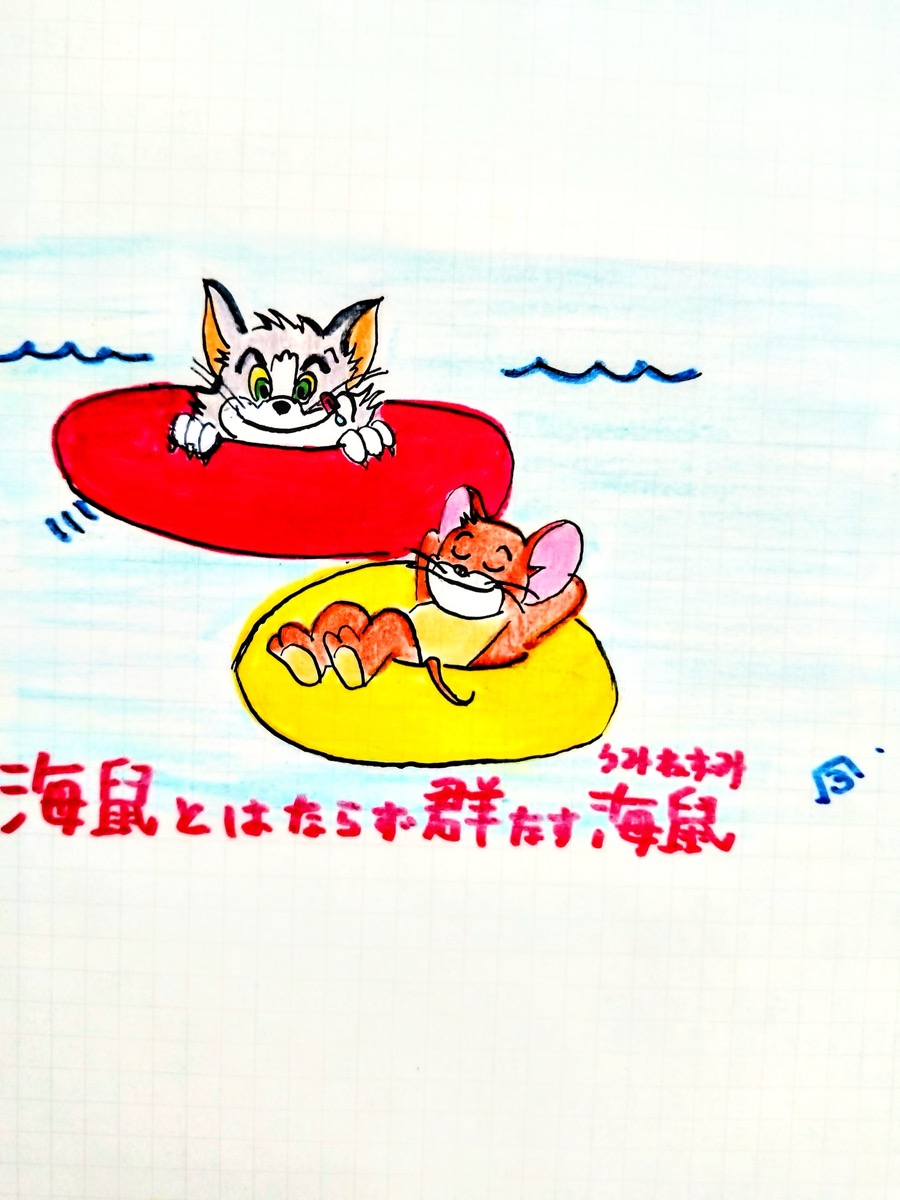 うみねずみ
海鼠とはならず群なす海鼠